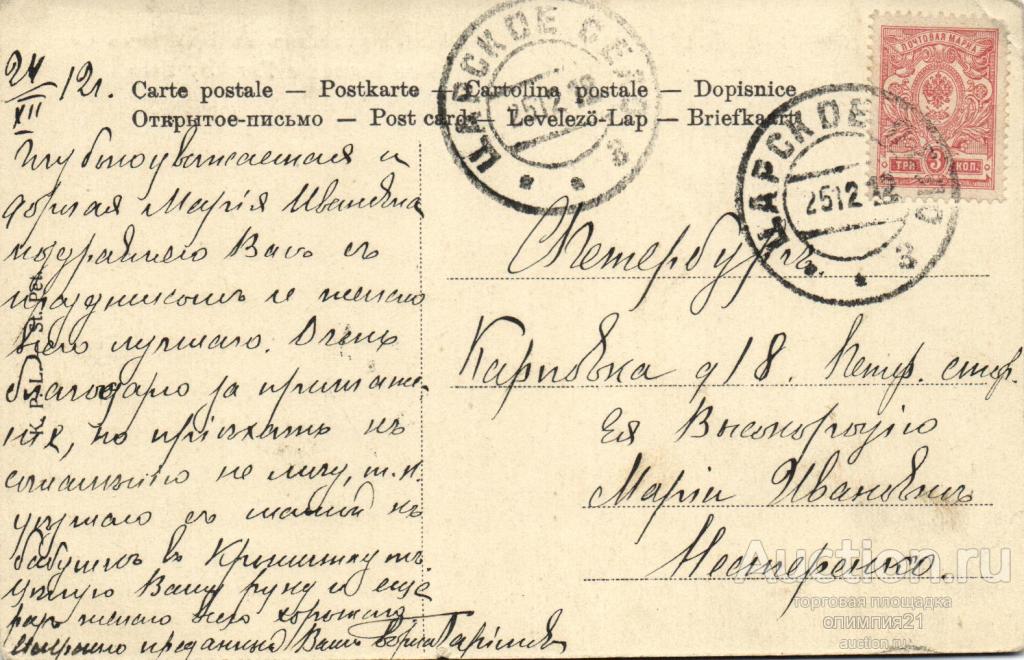 24/XII 12 г.
Carte postale — Postkarte — Cartolina postale — Dopisnice
Открытое-письмо — Post card — Levelezö-Lap — Briefkaart
ЦАРСКОЕ СЕЛО
25 12 12
3
ПОЧТОВАЯ МАРКА
ТРИ 3 КОП.
ЦАРСКОЕ СЕЛО
25 12 12
3
Глубокоуважаемая и
дорогая Марія Ивановна
поздравляю Васъ съ
праздникомъ и желаю
всего лучшаго. Очень
благодарю за приглаше-
ніе, но пріѣхать къ
сожалѣнію не могу, т. к.
уѣзжаю съ мамой къ
бабушкѣ въ Кронштадтъ.
Цѣлую Вашу руку и еще
разъ желаю всего хорошаго
преданный Вамъ
С Петербургъ.
Карповка д 18. Петр. стор.
Ея Высокородію
Маріи Ивановнѣ
Нестеренко.
St. Pet.
Auction.ru
торговая площадка
олимпия21
auction.ru